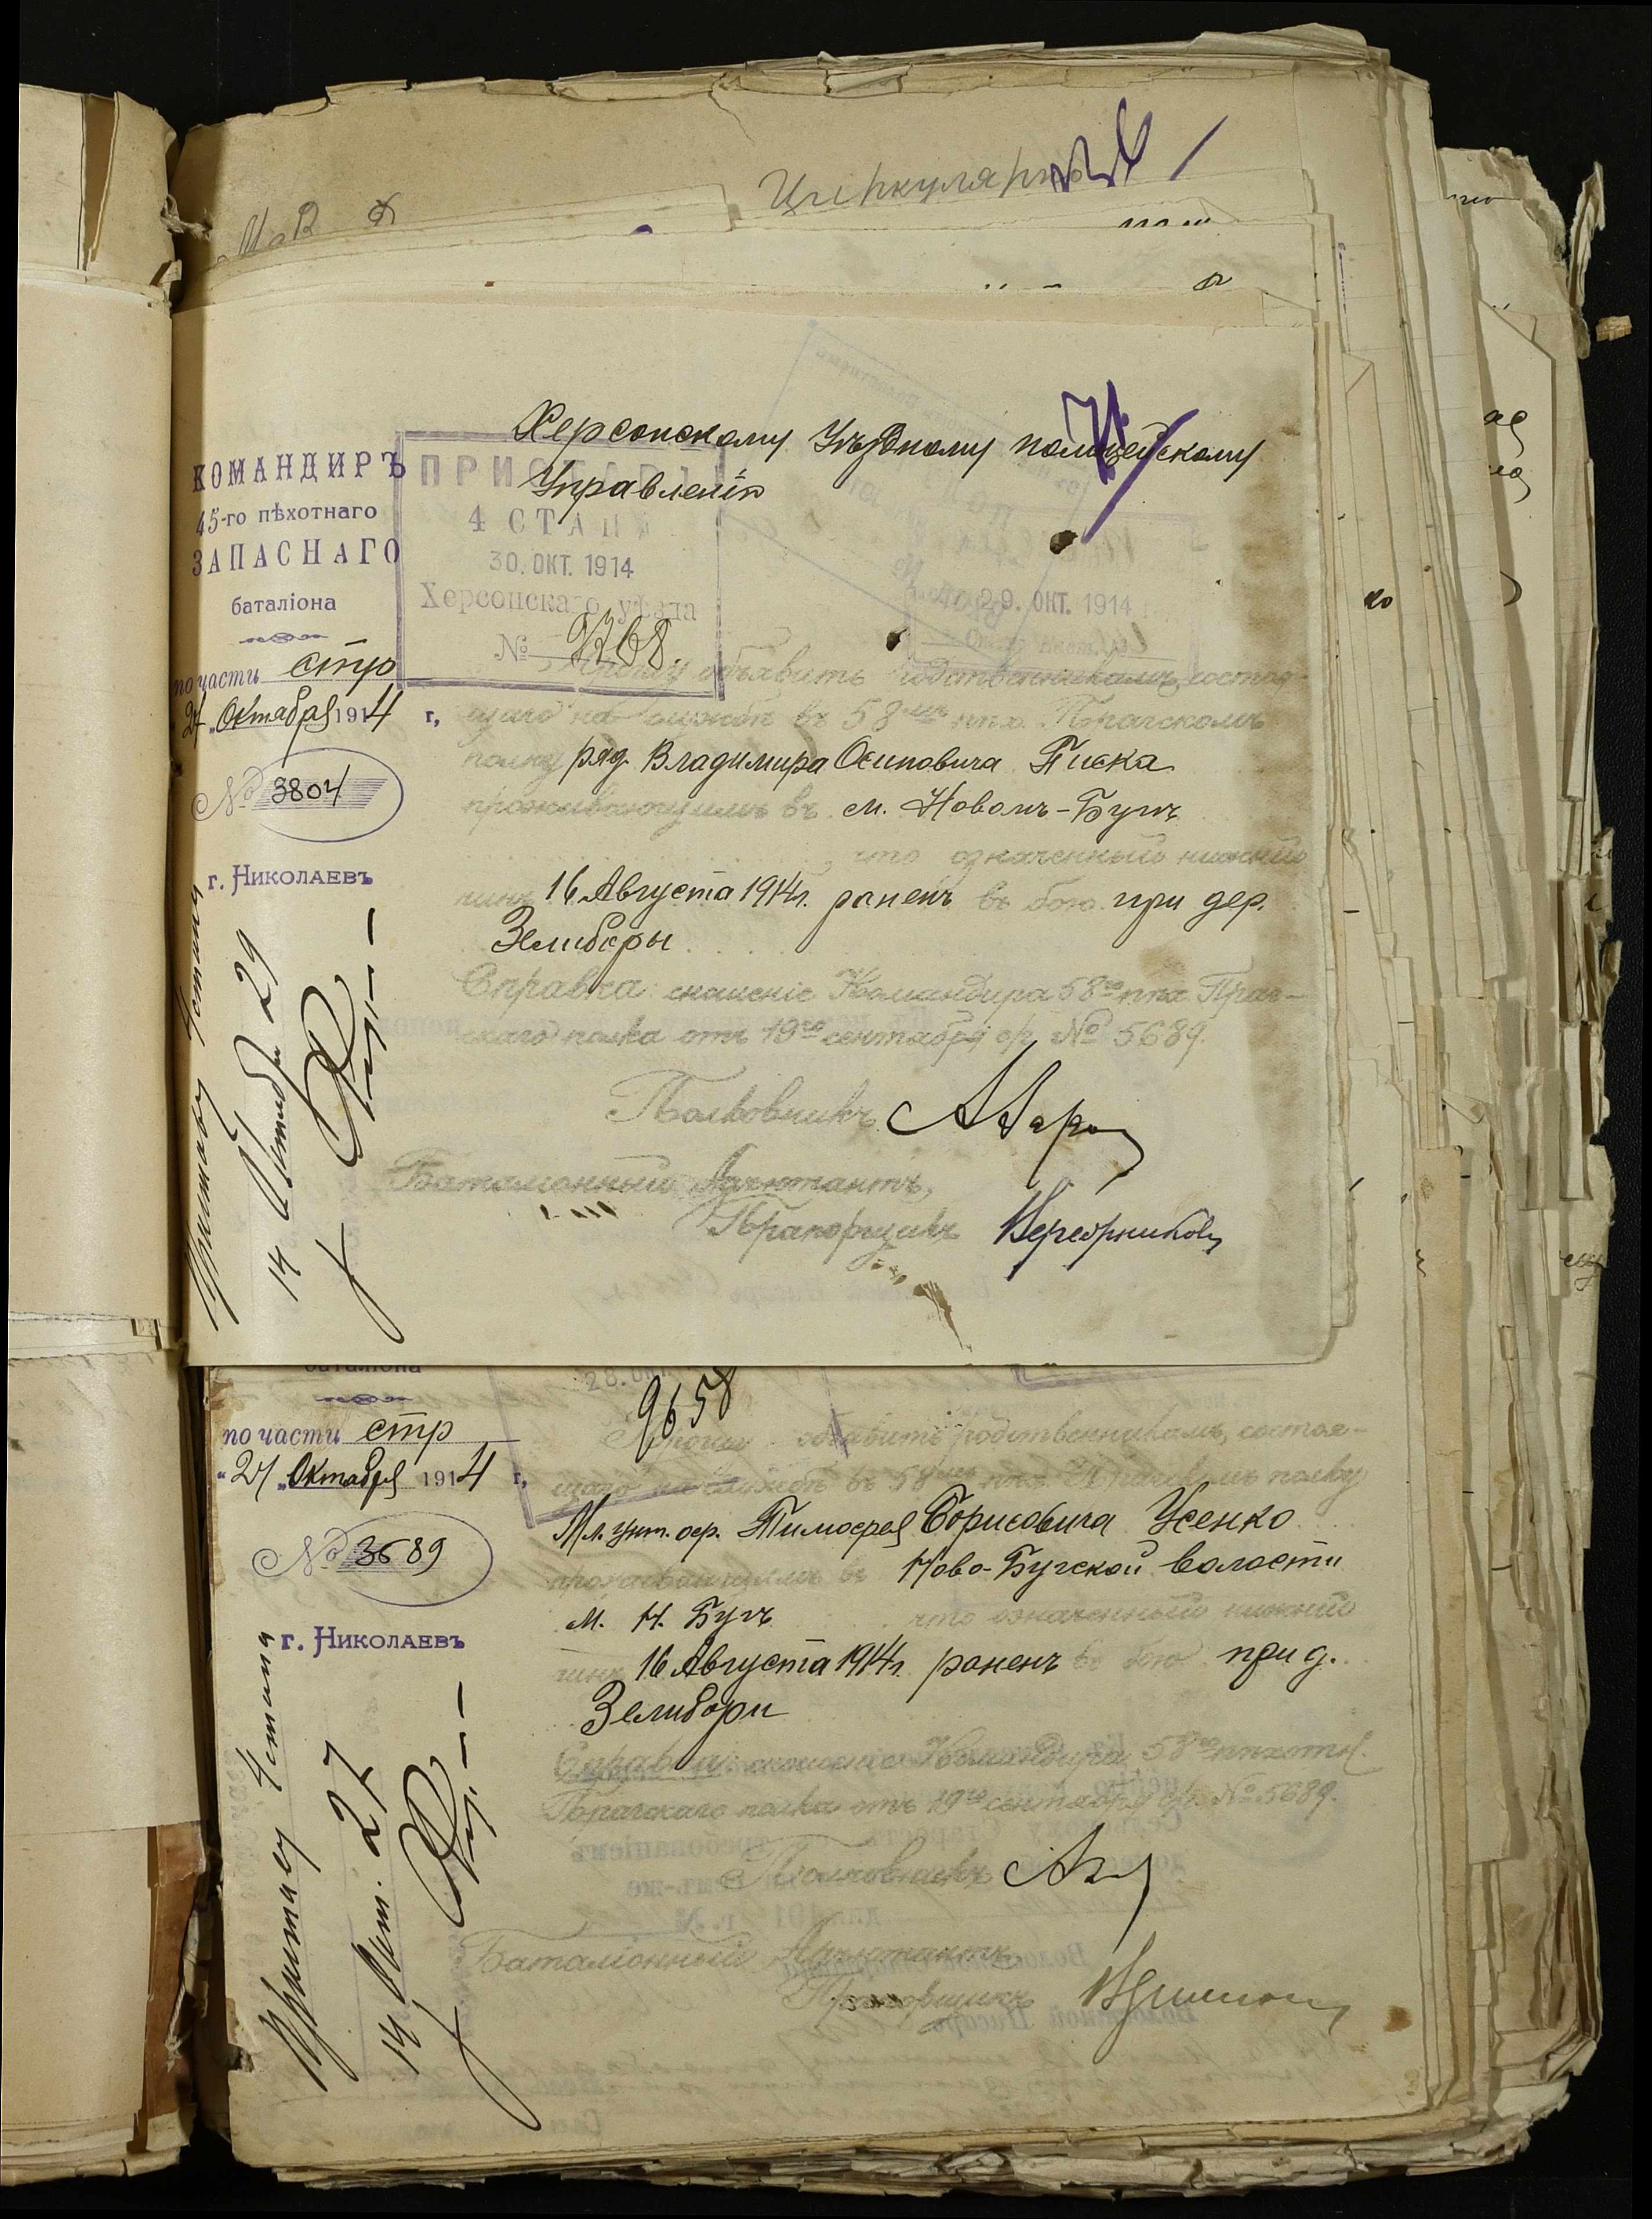 Циркулярно
Херсонскому Уѣздному полицейскому
Управленію
КОМАНДИРЪ
45-го пѣхотнаго
ЗАПАСНАГО
баталіона
по части стр
24 Октября 1914 г,
№ 3804
г. Николаевъ
ПРИСТАВЪ
4 СТАНА
30. ОКТ. 1914
Херсонскаго уѣзда
№ 9768.
29. ОКТ. 1914
Прошу объявить родственникамъ, состоя-
щаго на службѣ въ 58мъ пѣх. Прагскомъ
полку ряд. Владимира Осиповича Писка
проживающимъ въ м. Новомъ-Бугѣ
, что означенный нижній
чинъ 16 Августа 1914г. раненъ въ бою при дер.
Зелиборы
Справка: сношеніе Командира 58го пѣх. Праг-
скаго полка отъ 19го сентября с/г. № 5689.
Полковникъ
Баталіонный Адъютантъ,
Прапорщикъ
Приставу 4 стана
14 Октября 29
баталіона
по части стр
"24 „Октября 1914 г,
№ 3689
г. Николаевъ
9658
Прошу объявить родственникамъ, состоя-
щаго на службѣ въ 58мъ пѣх. Прагскомъ полку
Мл. унт. оф. Тимофея Борисовича Усенко
проживающимъ въ Ново-Бугской волости
м. Н. Бугъ что означенный нижній
чинъ 16 Августа 1914г. раненъ въ бою при д.
Зелибори
Справка: сношеніе Командира 58го пѣхотн.
Прагскаго полка отъ 19го сентября с/г. № 5689.
Полковникъ
Баталіонный Адъютантъ
Прапорщикъ
Приставу 4 стана
14 Окт. 27